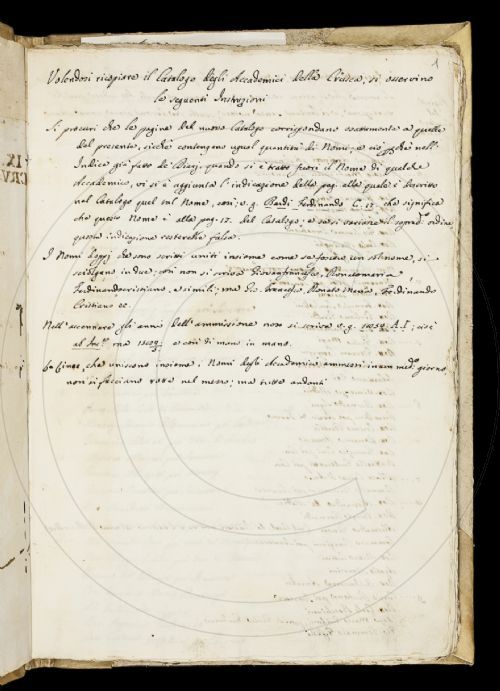 1
Volendosi ricopiare il Catalogo degli Accademici della Crusca, si osservino
le seguenti Instruzioni
Si procuri che le pagine del nuovo Catalogo corrispondano esattamente a quelle
del presente, sicchè contengano ugual quantità di Nomi; e ciò perchè nell'
Indice già fatto de' quando si è tratto fuori il Nome di qualche
Accademico, vi si è aggiunta l'indicazione della pag. alla quale è descritto
nel Catalogo quel tal Nome, così; v. g. Bardi Ferdinando C. 17. che significa
che questo Nome è alla pag. 17. del Catalogo; e se si variasse il soprad.° ordine
questa indicazione resterebbe falsa.
I Nomi doppj che sono scritti uniti insieme come se fossero un sol nome, si
sciolgano in due; così non si scriva Giovanfrancesco, Renatomaria,
Ferdinandocristiano, e simili; ma Gio. Francesco, Renato Maria, Ferdinando
Cristiano ec.
Nell'accennare gli anni dell'ammissione non si scriva v. g. A. I; cioè
ab Inc.ne ma e così di mano in mano.
Le linee, che uniscono insieme i Nomi degli Accademici ammessi in un med.° giorno
non si facciano rotte nel mezzo; ma tutte andanti
IX.
CRV